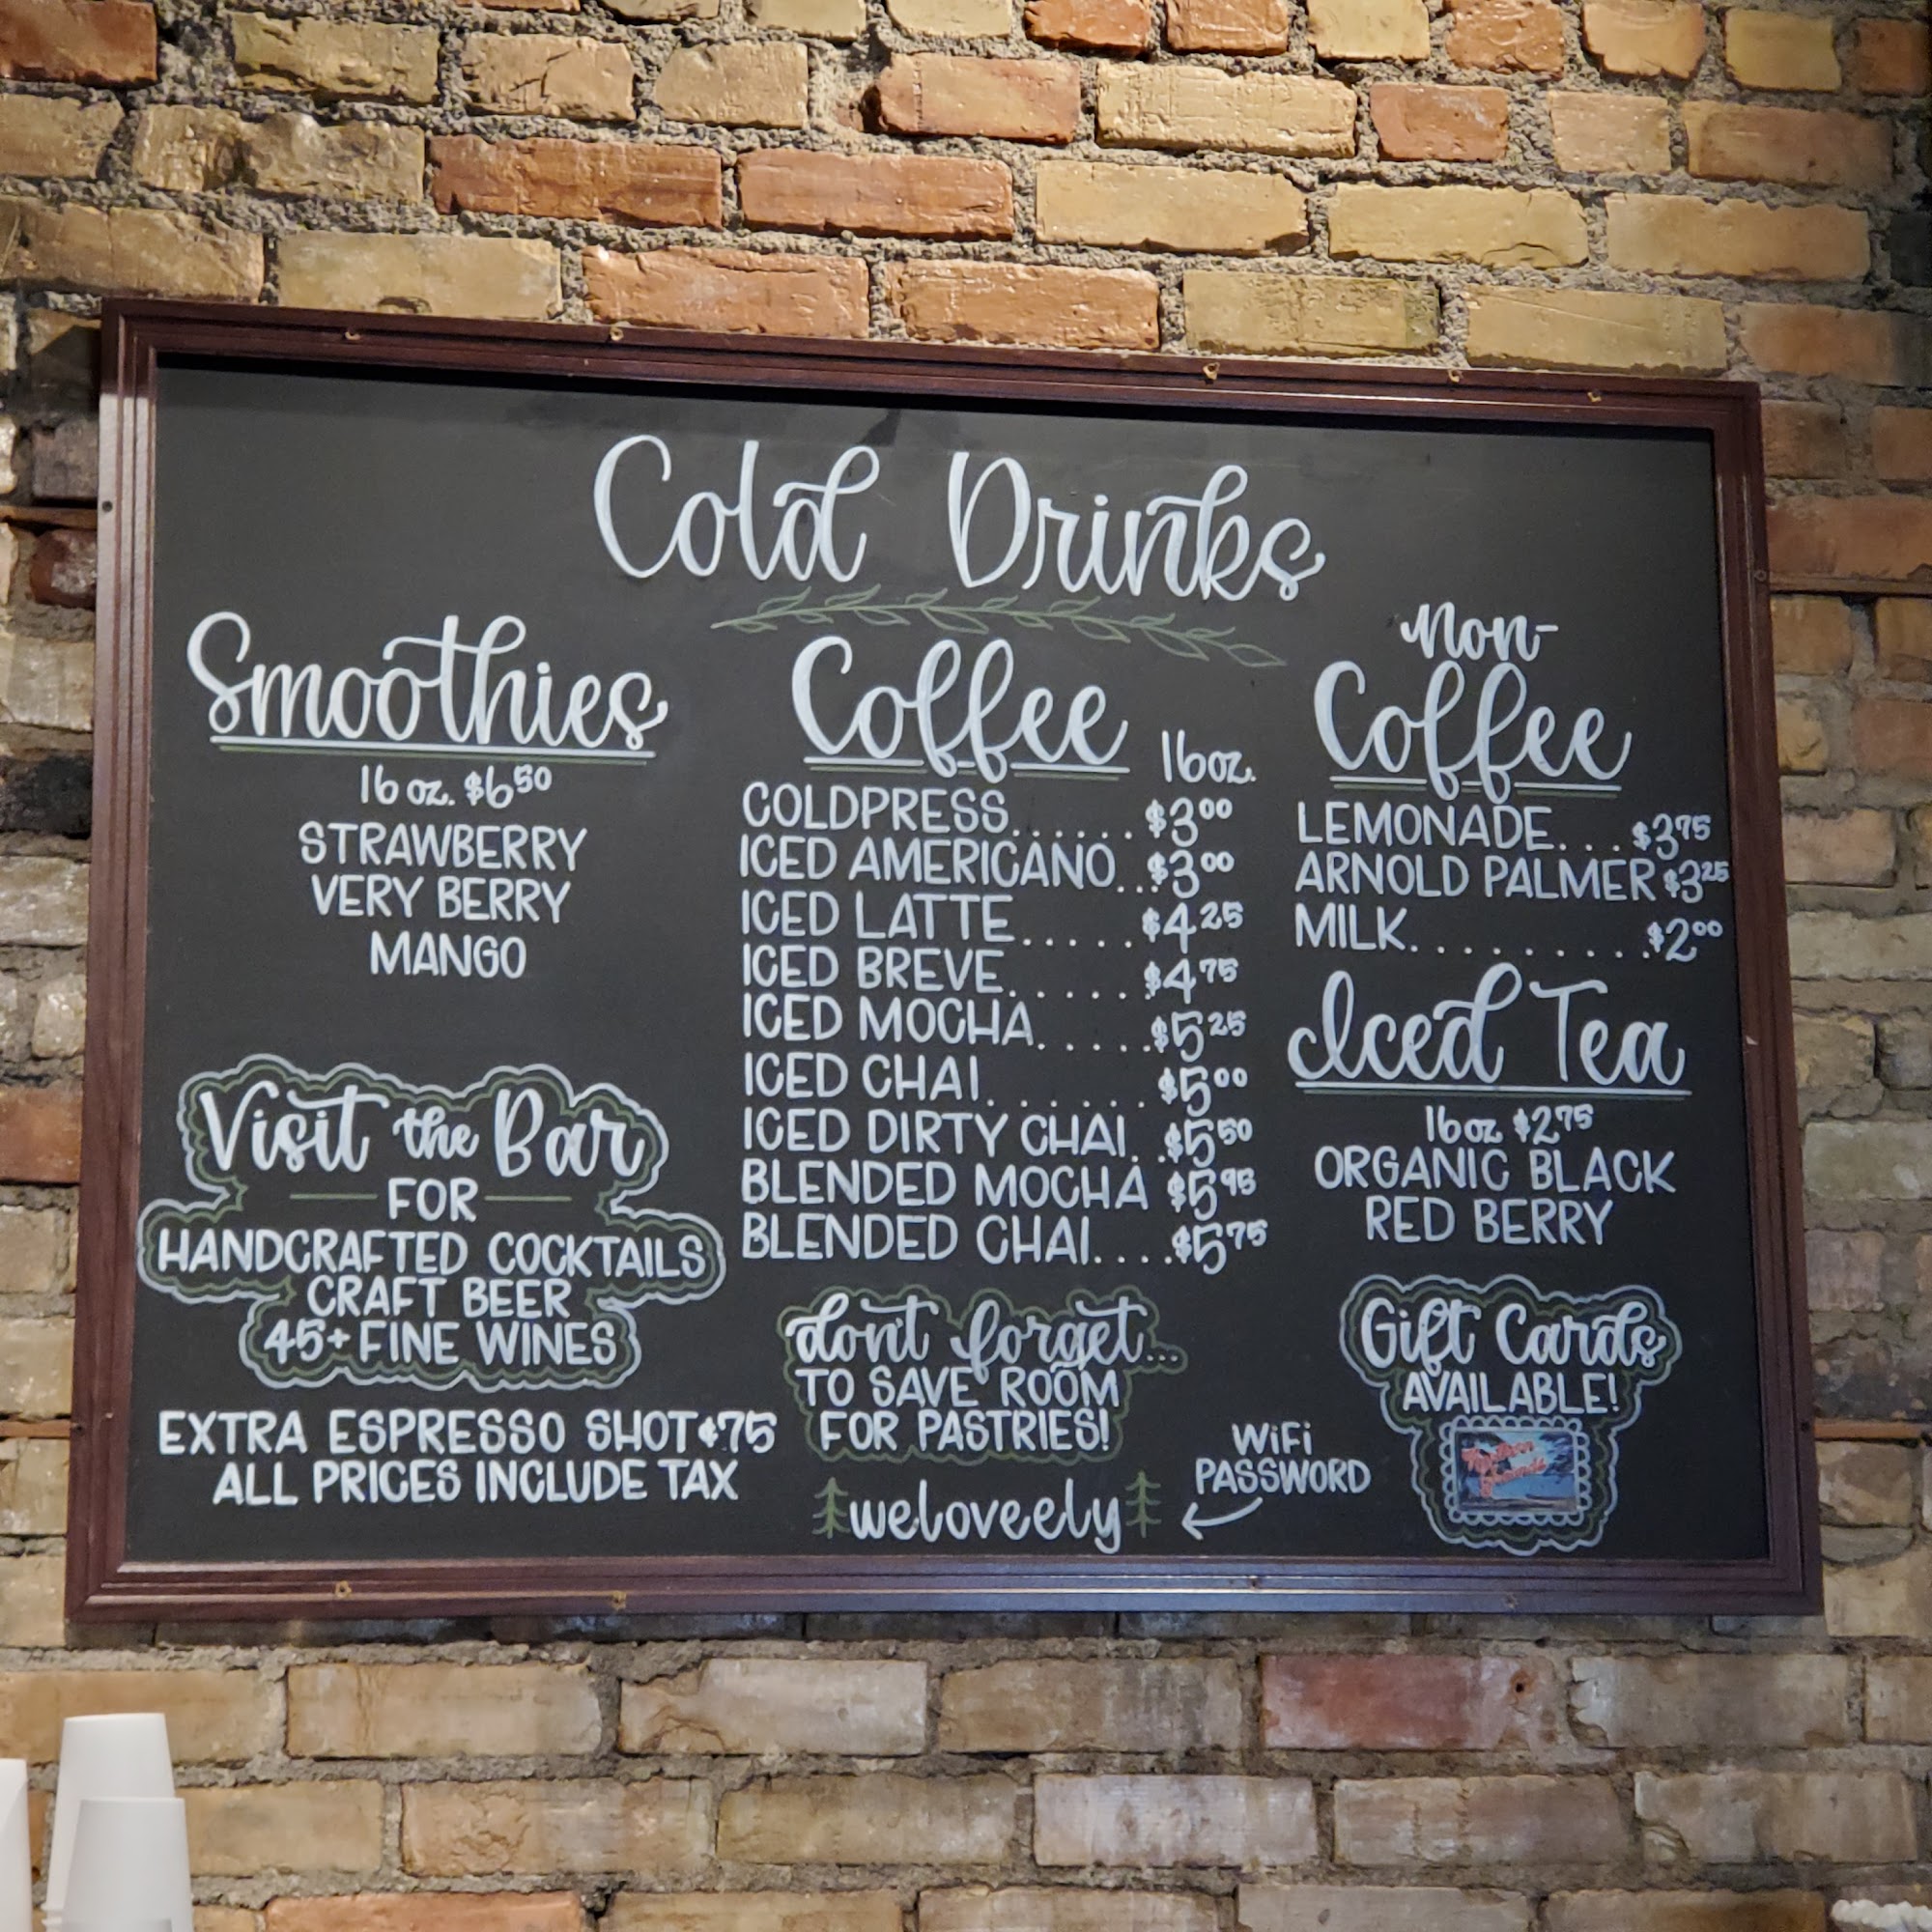 Cold Drinks
Smoothies
16 oz. $6.50
STRAWBERRY
VERY BERRY
MANGO
Visit the Bar
FOR
HANDCRAFTED COCKTAILS
CRAFT BEER
45+ FINE WINES
EXTRA ESPRESSO SHOT ¢75
ALL PRICES INCLUDE TAX
Coffee 16oz.
COLDPRESS...... $3.00
ICED AMERICANO... $3.00
ICED LATTE..... $4.25
ICED BREVE...... $4.75
ICED MOCHA..... $5.25
ICED CHAI....... $5.00
ICED DIRTY CHAI.. $5.50
BLENDED MOCHA $5.95
BLENDED CHAI.... $5.75
dont forget...
TO SAVE ROOM
FOR PASTRIES!
WiFi
PASSWORD
weloveely
Non-
Coffee
LEMONADE... $3.75
ARNOLD PALMER $3.25
MILK.......... $2.00
Iced Tea
16 oz $2.75
ORGANIC BLACK
RED BERRY
Gift Cards
AVAILABLE!